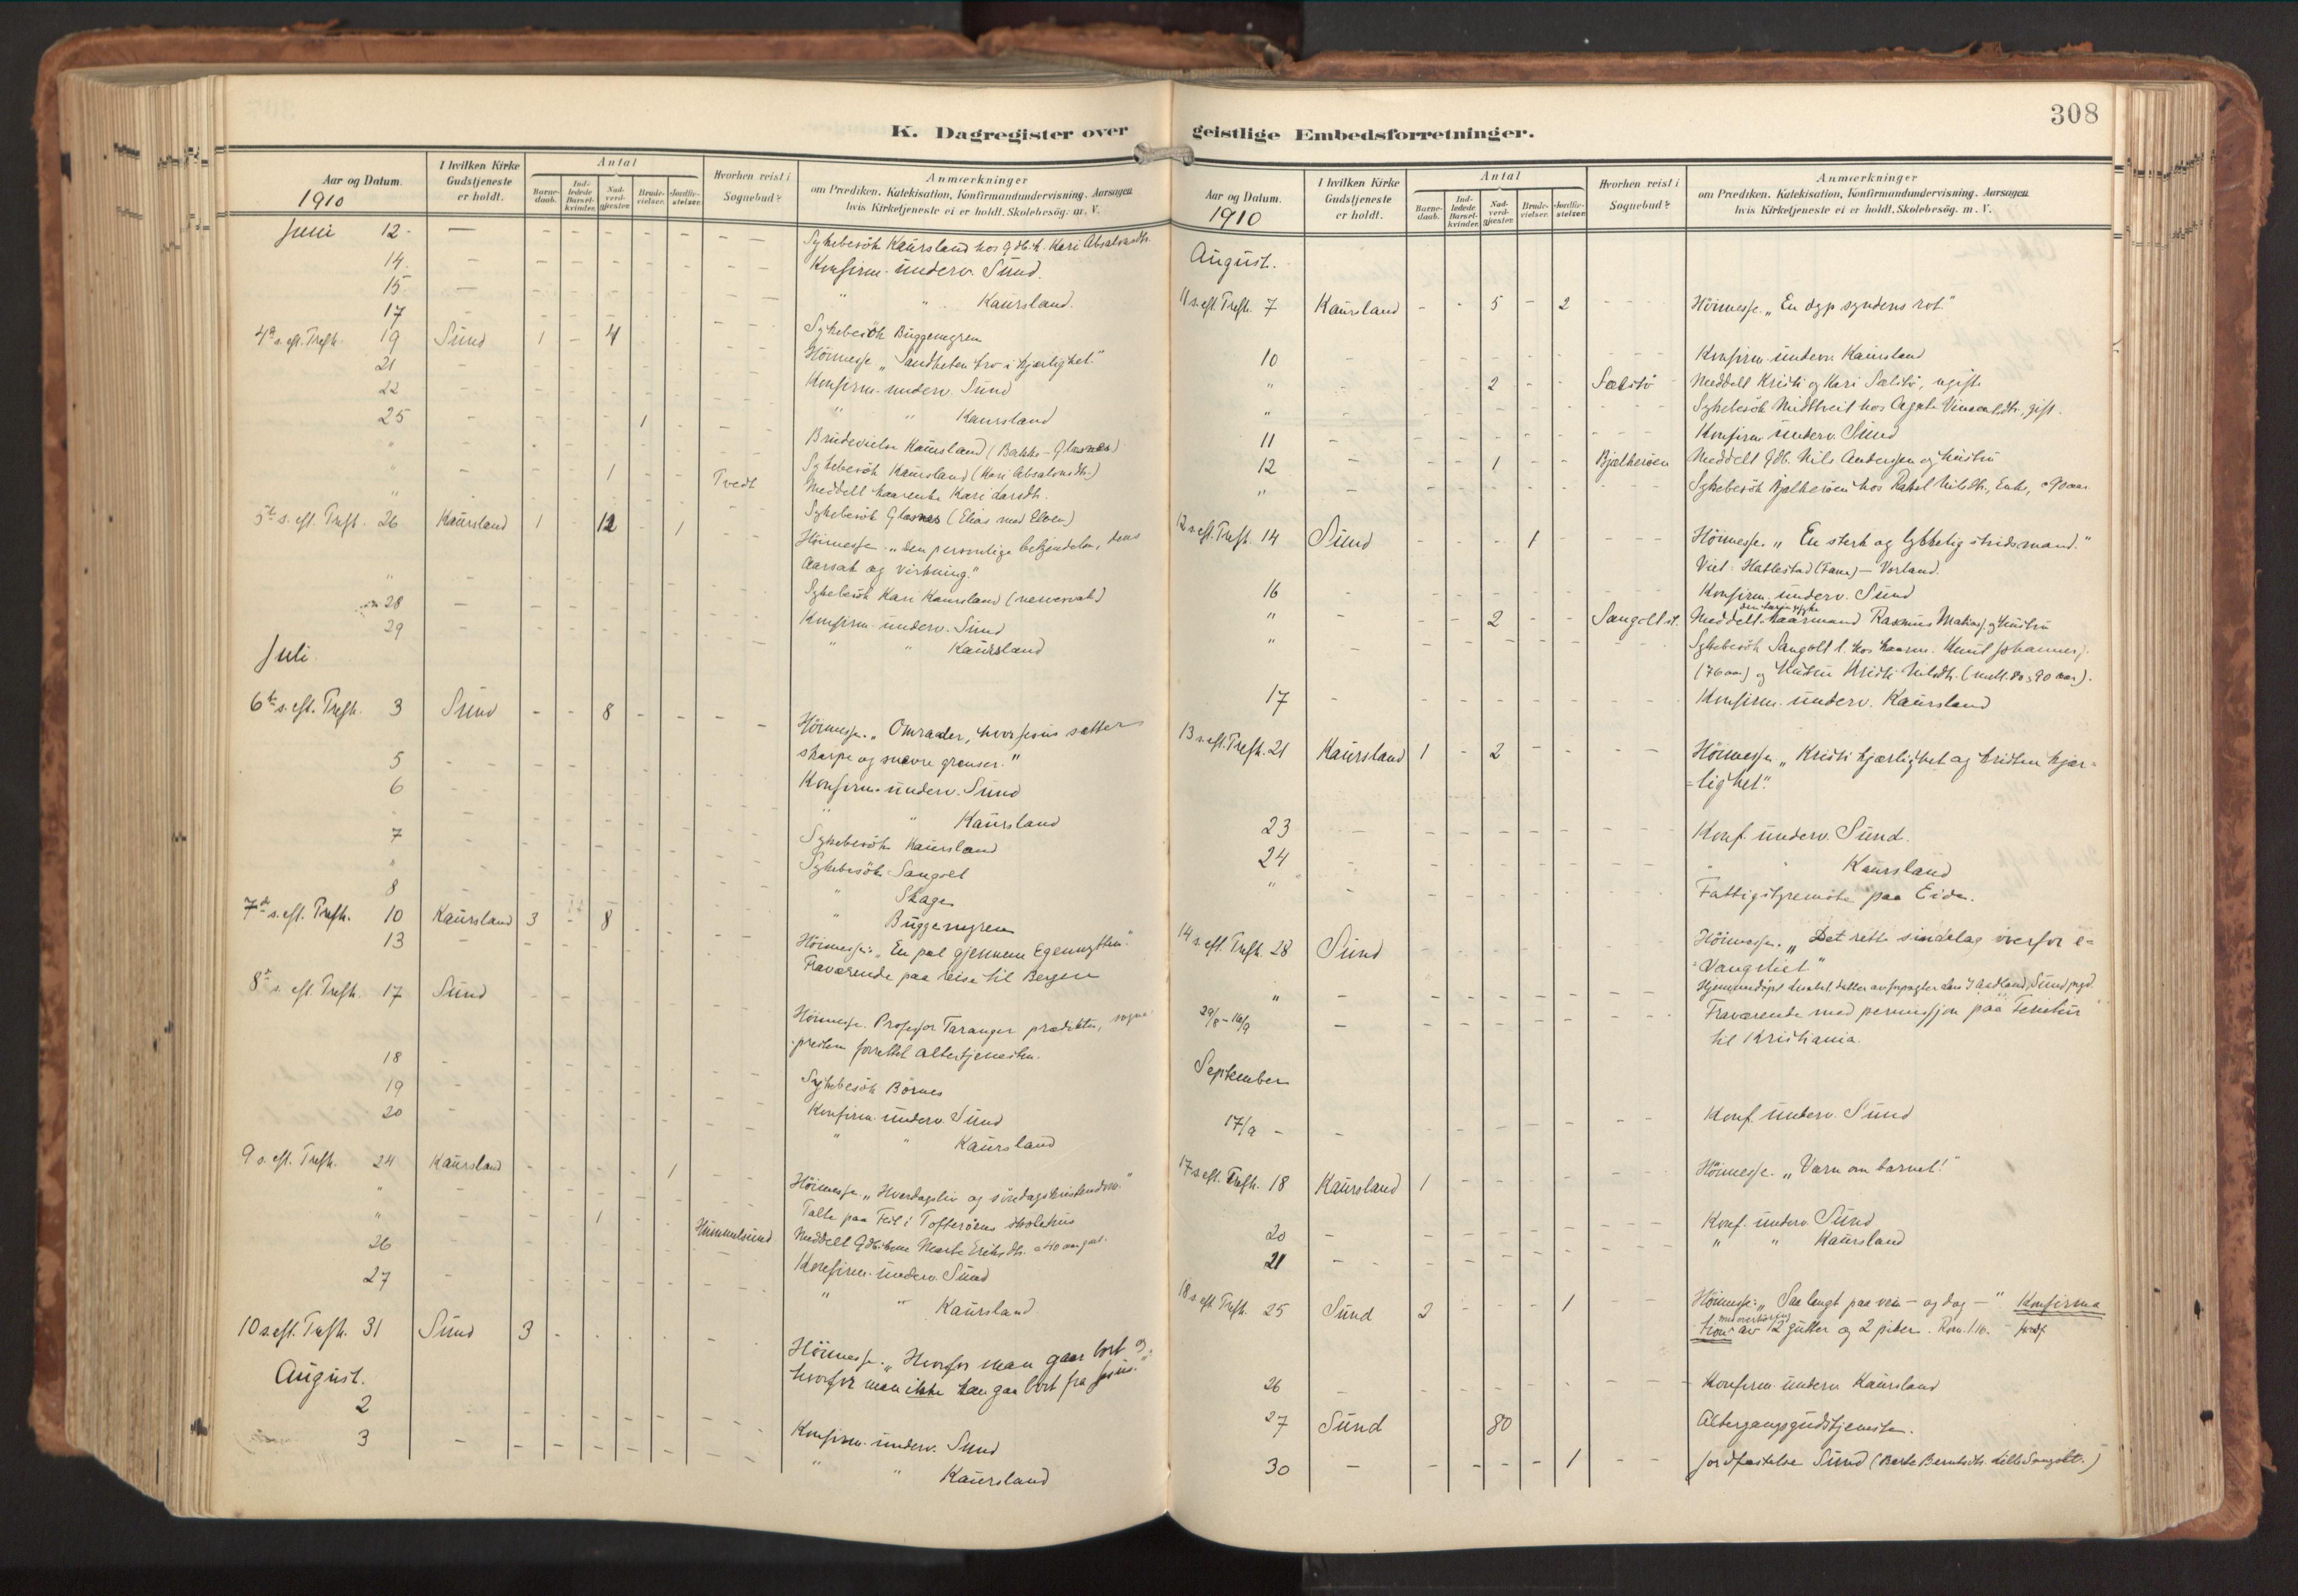 308
K. Dagregister over geistlige Embedsforretninger.
Aar og Datum. 1910
I hvilken Kirke Gudstjeneste er holdt.
Antal
Barne-daab.
Ind-ledede Barsel-kvinder.
Nad-verd-gjæster.
Brude-vielser.
Jordfæ-stelser.
Hvorhen reist i Sognebud?
Anmærkninger
om Prædiken, Katekisation, Konfirmandundervisning, Aarsagen
hvis Kirketjeneste ei er holdt, Skolebesøg. m. V.
Juni 12. — Sykebesök Kaursland hos Gdb.k. Kari Absalonsdtr.
14. — Konfirm. underv. Sund.
15 — " " Kaursland.
17 — Sykebesök Buggemyren
4de s. eft. Trefh. 19 Sund 1 - 4 Höimesse „Sandheten tro i kjærlighet"
21 Konfirm. underv. Sund
22 " " Kaursland
25 1 Brudevielse Kaursland (Bakke - Glasnes)
" Sykebesök Kaursland (Kari Absalonsdtr.)
" 1 Tvedt Meddelt kaarenke Kari Larsdtr.
" Sykebesök Glasnes (Elias med Elven)
5te s. eft. Trefh. 26 Kaursland 1 12 1 Höimesse „Den personlige bekjendelse, dens
Aarsak og virkning."
" Sykebesök Kari Kaursland (nervesvak)
28 Konfirm. underv. Sund
29 " " Kaursland
Juli.
6te s. eft. Trefh. 3 Sund - - 8 Höimesse. „Omraader, hvor Jesus sætter
skarpe og snevre grenser."
5 Konfirm. underv. Sund
6 " " Kaursland
" Sykebesök Kaursland
7 Sykebesök Sangolt
" " Skage
8 " Buggemyren
7de s. eft. Trefh. 10 Kaursland 3 - 8 Höimesse: „En pæl gjennem Egennytten."
13 Fraværende paa reise til Bergen
8de s. eft. Trefh. 17 Sund Höimesse. Professor Taranger prædikte, sogne-
presten forrettet altertjenesten.
18 Sykebesök Börnes
19 Konfirm. underv. Sund
20 " " Kaursland
9 s. eft. Trefh. 24 Kaursland 1 Höimesse „Hverdagsliv og söndagskristendom."
" Talte paa Fest i Tofteröens skolehus
" 1 Hummelsund Meddelt Gdb.kone Marte Eriksdtr. 40 aar gml.
26 Konfirm. underv. Sund
27 " " Kaursland.
10 s. eft. Trefh. 31 Sund 3 Höimesse. „Hvorfor man gaar bort og
hvorfor man ikke kan gaa bort fra Jesus."
August.
2 Konfirm. underv. Sund
3 " " Kaursland
Aar og Datum. 1910
I hvilken Kirke Gudstjeneste er holdt.
Antal
Barne-daab.
Ind-ledede Barsel-kvinder.
Nad-verd-gjæster.
Brude-vielser.
Jordfæ-stelser.
Hvorhen reist i Sognebud?
Anmærkninger
om Prædiken, Katekisation, Konfirmandundervisning, Aarsagen
hvis Kirketjeneste ei er holdt, Skolebesøg. m. V.
August.
11 s. eft. Trefh. 7 Kaursland - - 5 - 2 Höimesse. „En dyp syndens rot."
10 Konfirm. underv. Kaursland
" 2 Sælstö Meddelt Kristi og Kari Sælstö, ugifte
" Sykebesök Midttveit hos Agate Vincentsdtr. gift.
11 Konfirm. underv. Sund
12 1 Bjelkeröen Meddelt Gdb. Nils Andersen og Hustru
" Sykebesök Bjelkeröen hos Rakel Nilsdtr., Enke, 90 aar.
12 s. eft. Trefh. 14 Sund 1 Höimesse. „En sterk og lykkelig stridsmand."
Viet: Hatlestad (Fana) - Vorland.
16 Konfirm. underv. Sund
" 2 Sangolt st. Meddelt kaarmand Rasmus Matiass. og Hustru
" Sykebesök Sangolt l. hos kaarm. Knut Johanness.
(76 aar) og Hustru Kristi Nilsdtr. (mell. 80 og 90 aar).
17 Konfirm. underv. Kaursland
13 s. eft. Trefh. 21 Kaursland 1 - 2 Höimesse „Kristi kjærlighet og kristen kjær-
=lighet."
23 Konf. underv. Sund.
24 " " Kaursland
" Fattigstyremöte paa Eide.
14 s. eft. Trefh. 28 Sund Höimesse. „Det rette sindelag overfor e=
=vangeliet."
" Hjemmedöpt datter av Sund pgd.
29/8 - 16/9 Fraværende med permission paa Ferietur
til Kristiania.
September
17/9 - Konf. underv. Sund
17 s. eft. Trefh. 18 Kaursland 1 Höimesse. „Værn om barnet!"
20 Konf. underv. Sund
21 " " Kaursland
18 s. eft. Trefh. 25 Sund 2 1 Höimesse: „Saa langt paa vei - og dog -" Konfirma
tion av 12 gutter og 2 piker. Rom. 1.16. -
26 Konfirm. underv. Kaursland
27 Sund 80 Altergangsgudstjeneste.
30 1 Jordfæstelse Sund (Berte Berntsdtr. lille Sangolt.)